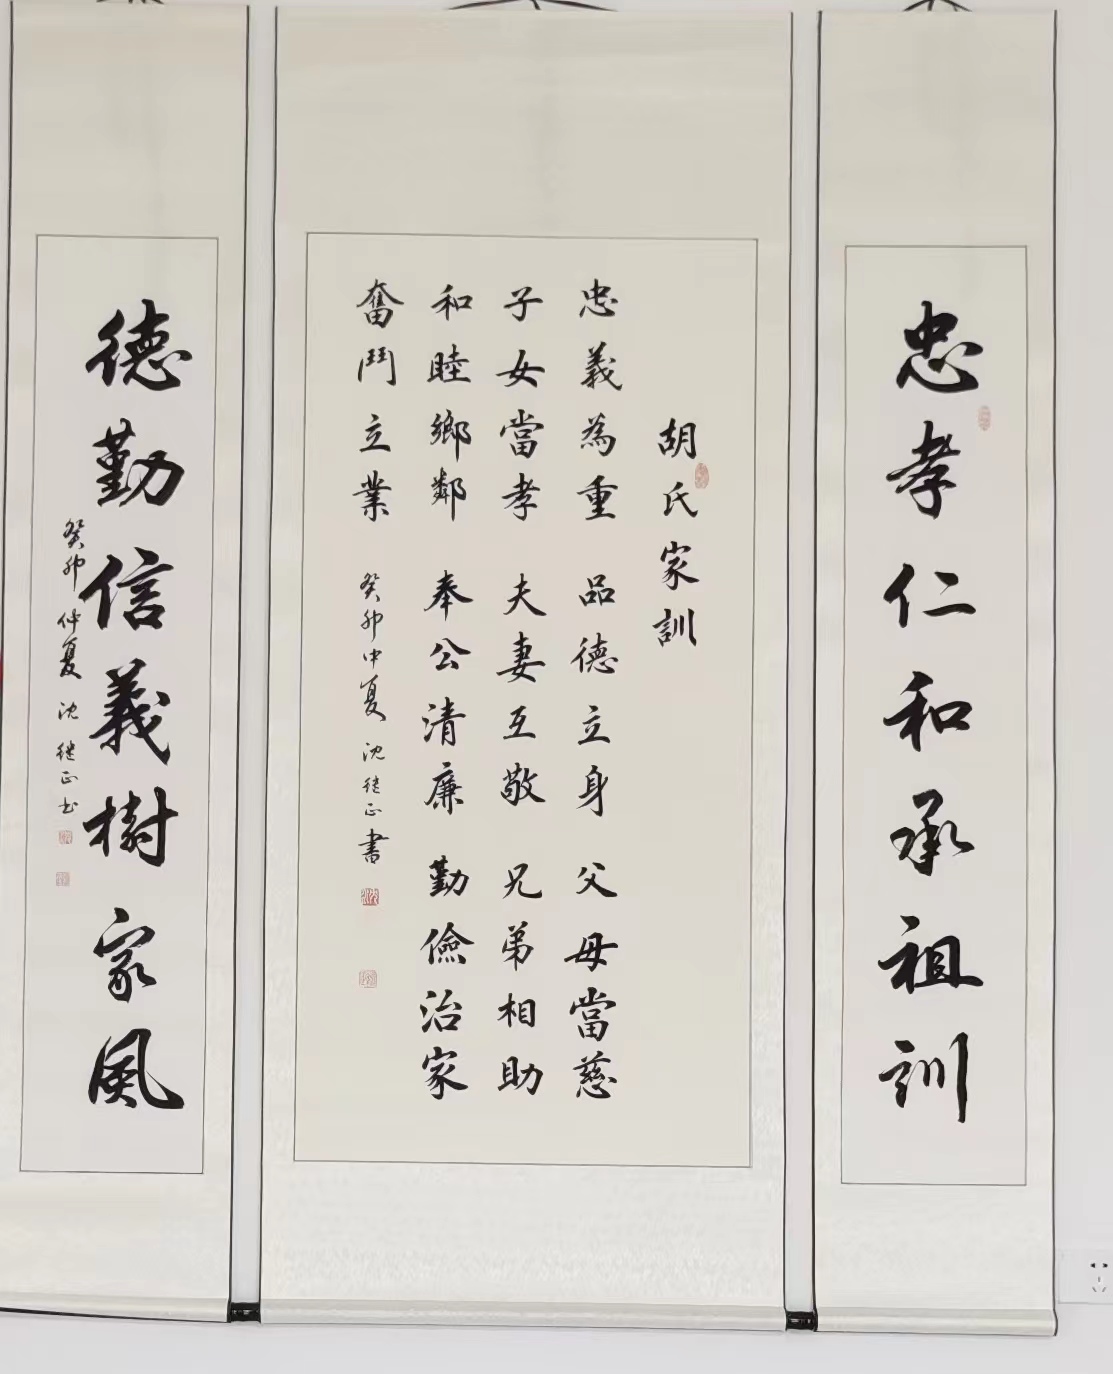 忠孝仁和承祖訓
胡氏家訓
忠義為重 品德立身 父母當慈
子女當孝 夫妻互敬 兄弟相助
和睦鄉鄰 奉公清廉 勤儉治家
奮鬥立業 癸卯中夏 沈继正書
德勤信義樹家風
癸卯仲夏 沈继正书